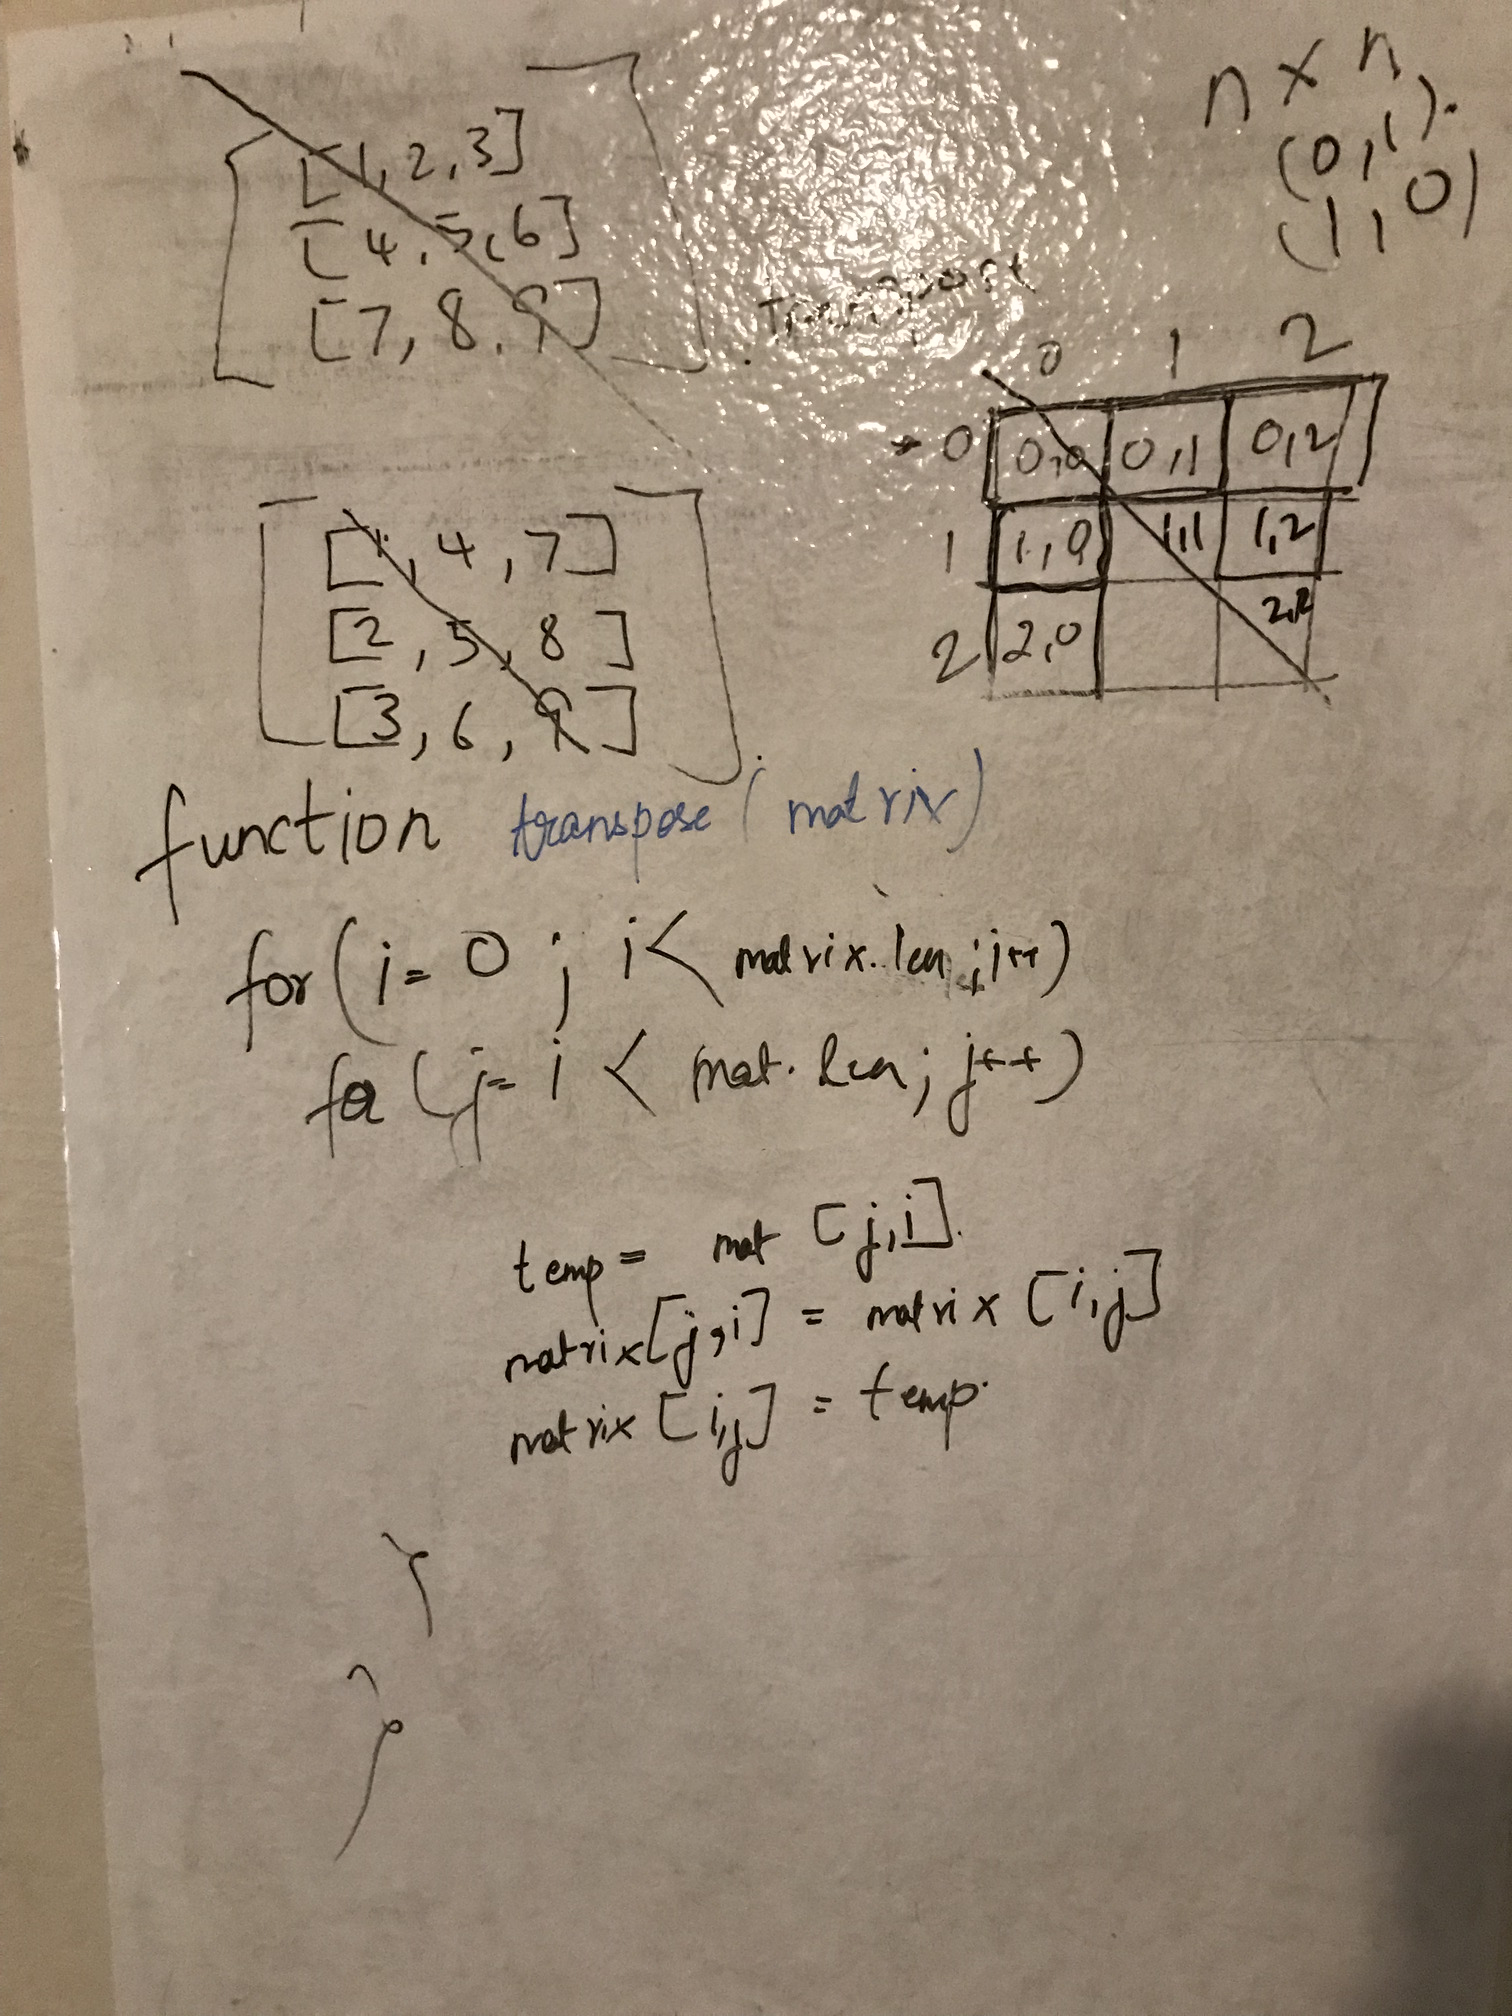 [1, 2, 3]
[4, 5, 6]
[7, 8, 9]
Transpose
n x n
(0,1).
(1,0)
0 1 2
0 0,0 0,1 0,2
1 1,0 1,1 1,2
2 2,0 2,2
[1, 4, 7]
[2, 5, 8]
[3, 6, 9]
function transpose(matrix)
for(i=0; i< matrix.len; i++)
for(j= i < mat.len; j++)
temp= mat [j,i].
matrix[j,i] = matrix [i,j]
matrix [i,j] = temp.
}
}